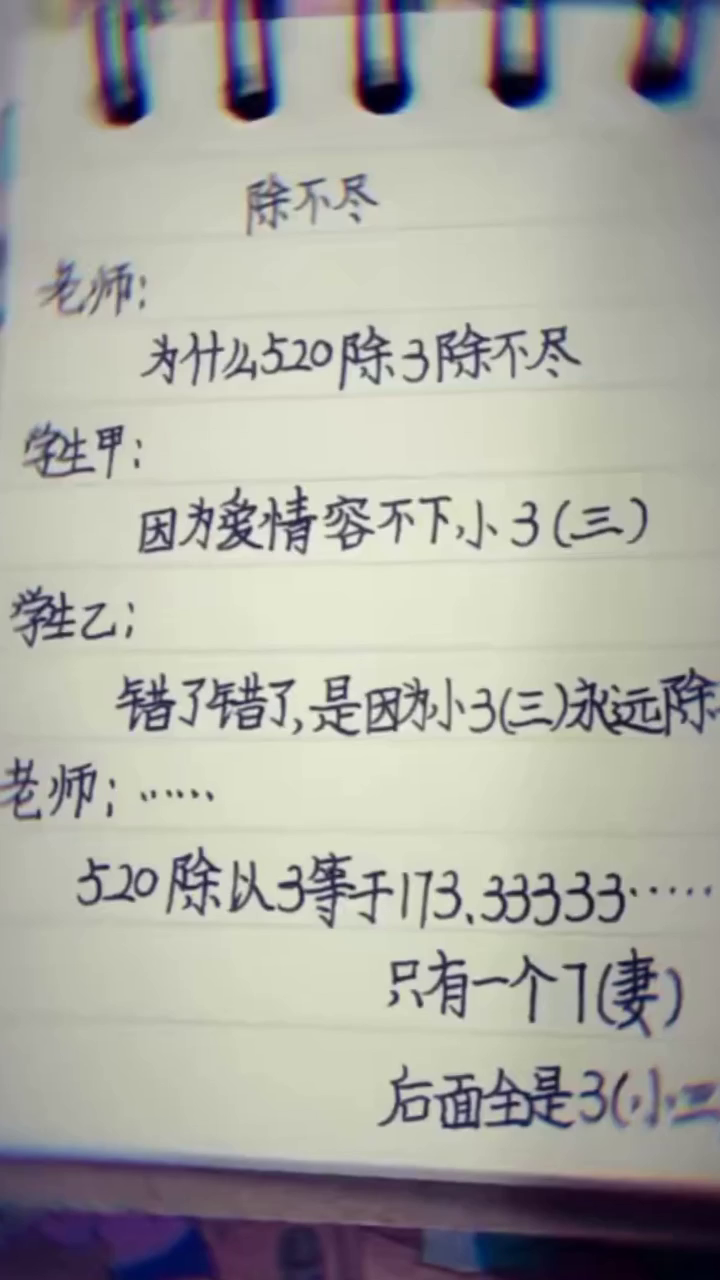 除不尽
老师:
为什么520除3除不尽
学生甲:
因为爱情容不下小3(三)
学生乙;
错了错了,是因为小3(三)永远除
老师;……
520除以3等于173.33333……
只有一个7(妻)
后面全是3(小三